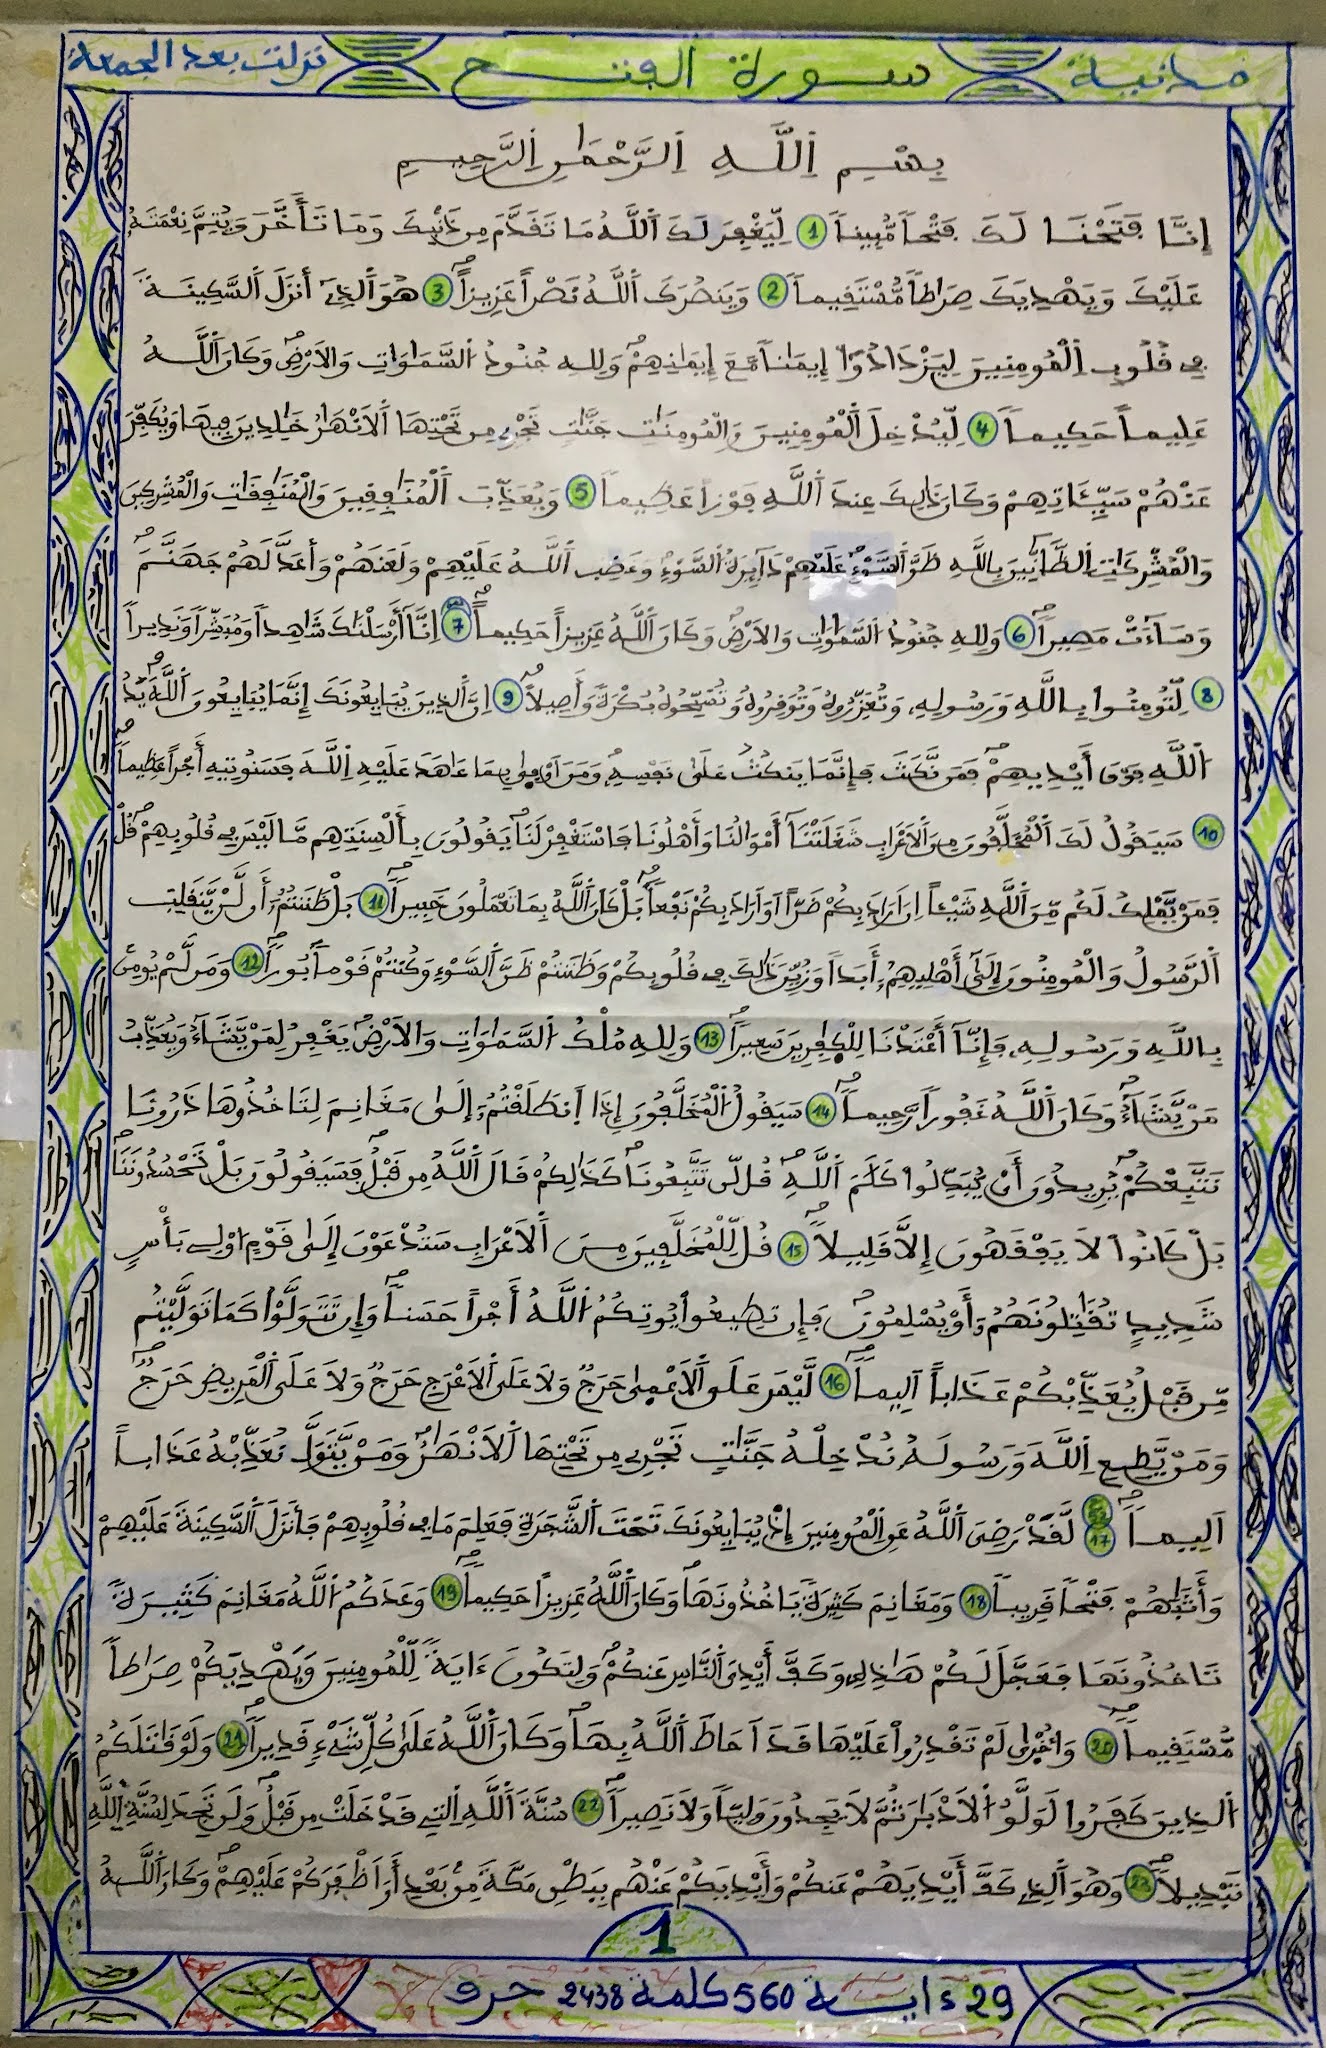 مدنية سورة الفتح نزلت بعد الجمعة
بِسْمِ اِللَّهِ اِلرَّحْمَٰنِ اِلرَّحِيمِ
إِنَّا فَتَحْنَا لَكَ فَتْحاً مُّبِيناً 1 لِّيَغْفِرَ لَكَ اَللَّهُ مَا تَقَدَّمَ مِن ذَنۢبِكَ وَمَا تَأَخَّرَ وَيُتِمَّ نِعْمَتَهُۥ
عَلَيْكَ وَيَهْدِيَكَ صِرَٰطاً مُّسْتَقِيماً 2 وَيَنصُرَكَ اَللَّهُ نَصْراً عَزِيزاً 3 هُوَ اَلذِےٓ أَنزَلَ اَلسَّكِينَةَ
فِے قُلُوبِ اِلْمُومِنِينَ لِيَزْدَادُوٓاْ إِيمَٰناً مَّعَ إِيمَٰنِهِمْ وَلِلهِ جُنُودُ اُلسَّمَٰوَٰتِ وَالَارْضِ وَكَانَ اَللَّهُ
عَلِيماً حَكِيماً 4 لِّيُدْخِلَ اَلْمُومِنِينَ وَالْمُومِنَٰتِ جَنَّٰتٍ تَجْرِے مِن تَحْتِهَا اَلَانْهَٰرُ خَٰلِدِينَ فِيهَا وَيُكَفِّرَ
عَنْهُمْ سَيِّـَٔاتِهِمْ وَكَانَ ذَٰلِكَ عِندَ اَللَّهِ فَوْزاً عَظِيماً 5 وَيُعَذِّبَ اَلْمُنَٰفِقِينَ وَالْمُنَٰفِقَٰتِ وَالْمُشْرِكِينَ
وَالْمُشْرِكَٰتِ اِلظَّآنِّينَ بِاللَّهِ ظَنَّ اَلسَّوْءِ عَلَيْهِمْ دَآئِرَةُ اُلسَّوْءِ وَغَضِبَ اَللَّهُ عَلَيْهِمْ وَلَعَنَهُمْ وَأَعَدَّ لَهُمْ جَهَنَّمَ
وَسَآءَتْ مَصِيراً 6 وَلِلهِ جُنُودُ اُلسَّمَٰوَٰتِ وَالَارْضِ وَكَانَ اَللَّهُ عَزِيزاً حَكِيماً 7 اِنَّآ أَرْسَلْنَٰكَ شَٰهِداً وَمُبَشِّراً وَنَذِيراً
8 لِّتُومِنُواْ بِاللَّهِ وَرَسُولِهِۦ وَتُعَزِّرُوهُ وَتُوَقِّرُوهُ وَتُسَبِّحُوهُ بُكْرَةً وَأَصِيلاً 9 اِنَّ اَلذِينَ يُبَايِعُونَكَ إِنَّمَا يُبَايِعُونَ اَللَّهَ يَدُ
اُللَّهِ فَوْقَ أَيْدِيهِمْ فَمَن نَّكَثَ فَإِنَّمَا يَنكُثُ عَلَىٰ نَفْسِهِۦ وَمَنَ اَوْفَىٰ بِمَا عَٰهَدَ عَلَيْهِ اِللَّهَ فَسَنُوتِيهِ أَجْراً عَظِيماً
10 سَيَقُولُ لَكَ اَلْمُخَلَّفُونَ مِنَ اَلَاعْرَابِ شَغَلَتْنَآ أَمْوَٰلُنَا وَأَهْلُونَا فَاسْتَغْفِرْ لَنَا يَقُولُونَ بِأَلْسِنَتِهِم مَّا لَيْسَ فِے قُلُوبِهِمْ قُلْ
فَمَنْ يَّمْلِكُ لَكُم مِّنَ اَللَّهِ شَيْـٔاً اِنَ اَرَادَ بِكُمْ ضَرّاً اَوَ اَرَادَ بِكُمْ نَفْعاً بَلْ كَانَ اَللَّهُ بِمَا تَعْمَلُونَ خَبِيراً 11 بَلْ ظَنَنتُمُۥٓ أَن لَّنْ يَّنقَلِبَ
اَلرَّسُولُ وَالْمُومِنُونَ إِلَىٰٓ أَهْلِيهِمُۥٓ أَبَداً وَزُيِّنَ ذَٰلِكَ فِے قُلُوبِكُمْ وَظَنَنتُمْ ظَنَّ اَلسَّوْءِ وَكُنتُمْ قَوْماً بُوراً 12 وَمَن لَّمْ يُومِنۢ
بِاللَّهِ وَرَسُولِهِۦ فَإِنَّآ أَعْتَدْنَا لِلْكٰ۪فِرِينَ سَعِيراً 13 وَلِلهِ مُلْكُ اُلسَّمَٰوَٰتِ وَالَارْضِ يَغْفِرُ لِمَنْ يَّشَآءُ وَيُعَذِّبُ
مَنْ يَّشَآءُ وَكَانَ اَللَّهُ غَفُوراً رَّحِيماً 14 سَيَقُولُ اُلْمُخَلَّفُونَ إِذَا اَنطَلَقْتُمُۥٓ إِلَىٰ مَغَانِمَ لِتَاخُذُوهَا ذَرُونَا
نَتَّبِعْكُمْ يُرِيدُونَ أَنْ يُّبَدِّلُواْ كَلَٰمَ اَللَّهِ قُل لَّن تَتَّبِعُونَا كَذَٰلِكُمْ قَالَ اَللَّهُ مِن قَبْلُ فَسَيَقُولُونَ بَلْ تَحْسُدُونَنَا
بَلْ كَانُواْ لَا يَفْقَهُونَ إِلَّا قَلِيلاً 15 قُل لِّلْمُخَلَّفِينَ مِنَ اَلَاعْرَابِ سَتُدْعَوْنَ إِلَىٰ قَوْمٍ اُوْلِے بَأْسٍ
شَدِيدٍ تُقَٰتِلُونَهُمُۥٓ أَوْ يُسْلِمُونَ فَإِن تُطِيعُواْ يُوتِكُمُ اُللَّهُ أَجْراً حَسَناً وَإِن تَتَوَلَّوْاْ كَمَا تَوَلَّيْتُم
مِّن قَبْلُ يُعَذِّبْكُمْ عَذَاباً اَلِيماً 16 لَّيْسَ عَلَى اَلَاعْمَىٰ حَرَجٌ وَلَا عَلَى اَلَاعْرَجِ حَرَجٌ وَلَا عَلَى اَلْمَرِيضِ حَرَجٌ
وَمَنْ يُّطِعِ اِللَّهَ وَرَسُولَهُۥ نُدْخِلْهُ جَنَّٰتٍ تَجْرِے مِن تَحْتِهَا اَلَانْهَٰرُ وَمَنْ يَّتَوَلَّ نُعَذِّبْهُ عَذَاباً
اَلِيماً 17 لَّقَدْ رَضِيَ اَللَّهُ عَنِ اِلْمُومِنِينَ إِذْ يُبَايِعُونَكَ تَحْتَ اَلشَّجَرَةِ فَعَلِمَ مَا فِے قُلُوبِهِمْ فَأَنزَلَ اَلسَّكِينَةَ عَلَيْهِمْ
وَأَثَٰبَهُمْ فَتْحاً قَرِيباً 18 وَمَغَانِمَ كَثِيرَةً يَاخُذُونَهَا وَكَانَ اَللَّهُ عَزِيزاً حَكِيماً 19 وَعَدَكُمُ اُللَّهُ مَغَانِمَ كَثِيرَةً
تَاخُذُونَهَا فَعَجَّلَ لَكُمْ هَٰذِهِۦ وَكَفَّ أَيْدِيَ اَلنَّاسِ عَنكُمْ وَلِتَكُونَ ءَايَةً لِّلْمُومِنِينَ وَيَهْدِيَكُمْ صِرَٰطاً
مُّسْتَقِيماً 20 وَأُخْرَىٰ لَمْ تَقْدِرُواْ عَلَيْهَا قَدَ اَحَاطَ اَللَّهُ بِهَا وَكَانَ اَللَّهُ عَلَىٰ كُلِّ شَےْءٍ قَدِيراً 21 وَلَوْ قَٰتَلَكُمُ
اُلذِينَ كَفَرُواْ لَوَلَّوُاْ اُلَادْبَٰرَ ثُمَّ لَا يَجِدُونَ وَلِيّاً وَلَا نَصِيراً 22 سُنَّةَ اَللَّهِ اِلتِے قَدْ خَلَتْ مِن قَبْلُ وَلَن تَجِدَ لِسُنَّةِ اِللَّهِ
تَبْدِيلاً 23 وَهُوَ اَلذِے كَفَّ أَيْدِيَهُمْ عَنكُمْ وَأَيْدِيَكُمْ عَنْهُم بِبَطْنِ مَكَّةَ مِنۢ بَعْدِ أَنَ اَظْفَرَكُمْ عَلَيْهِمْ وَكَانَ اَللَّهُ
1
29 ءاية 560 كلمة 2438 حرف